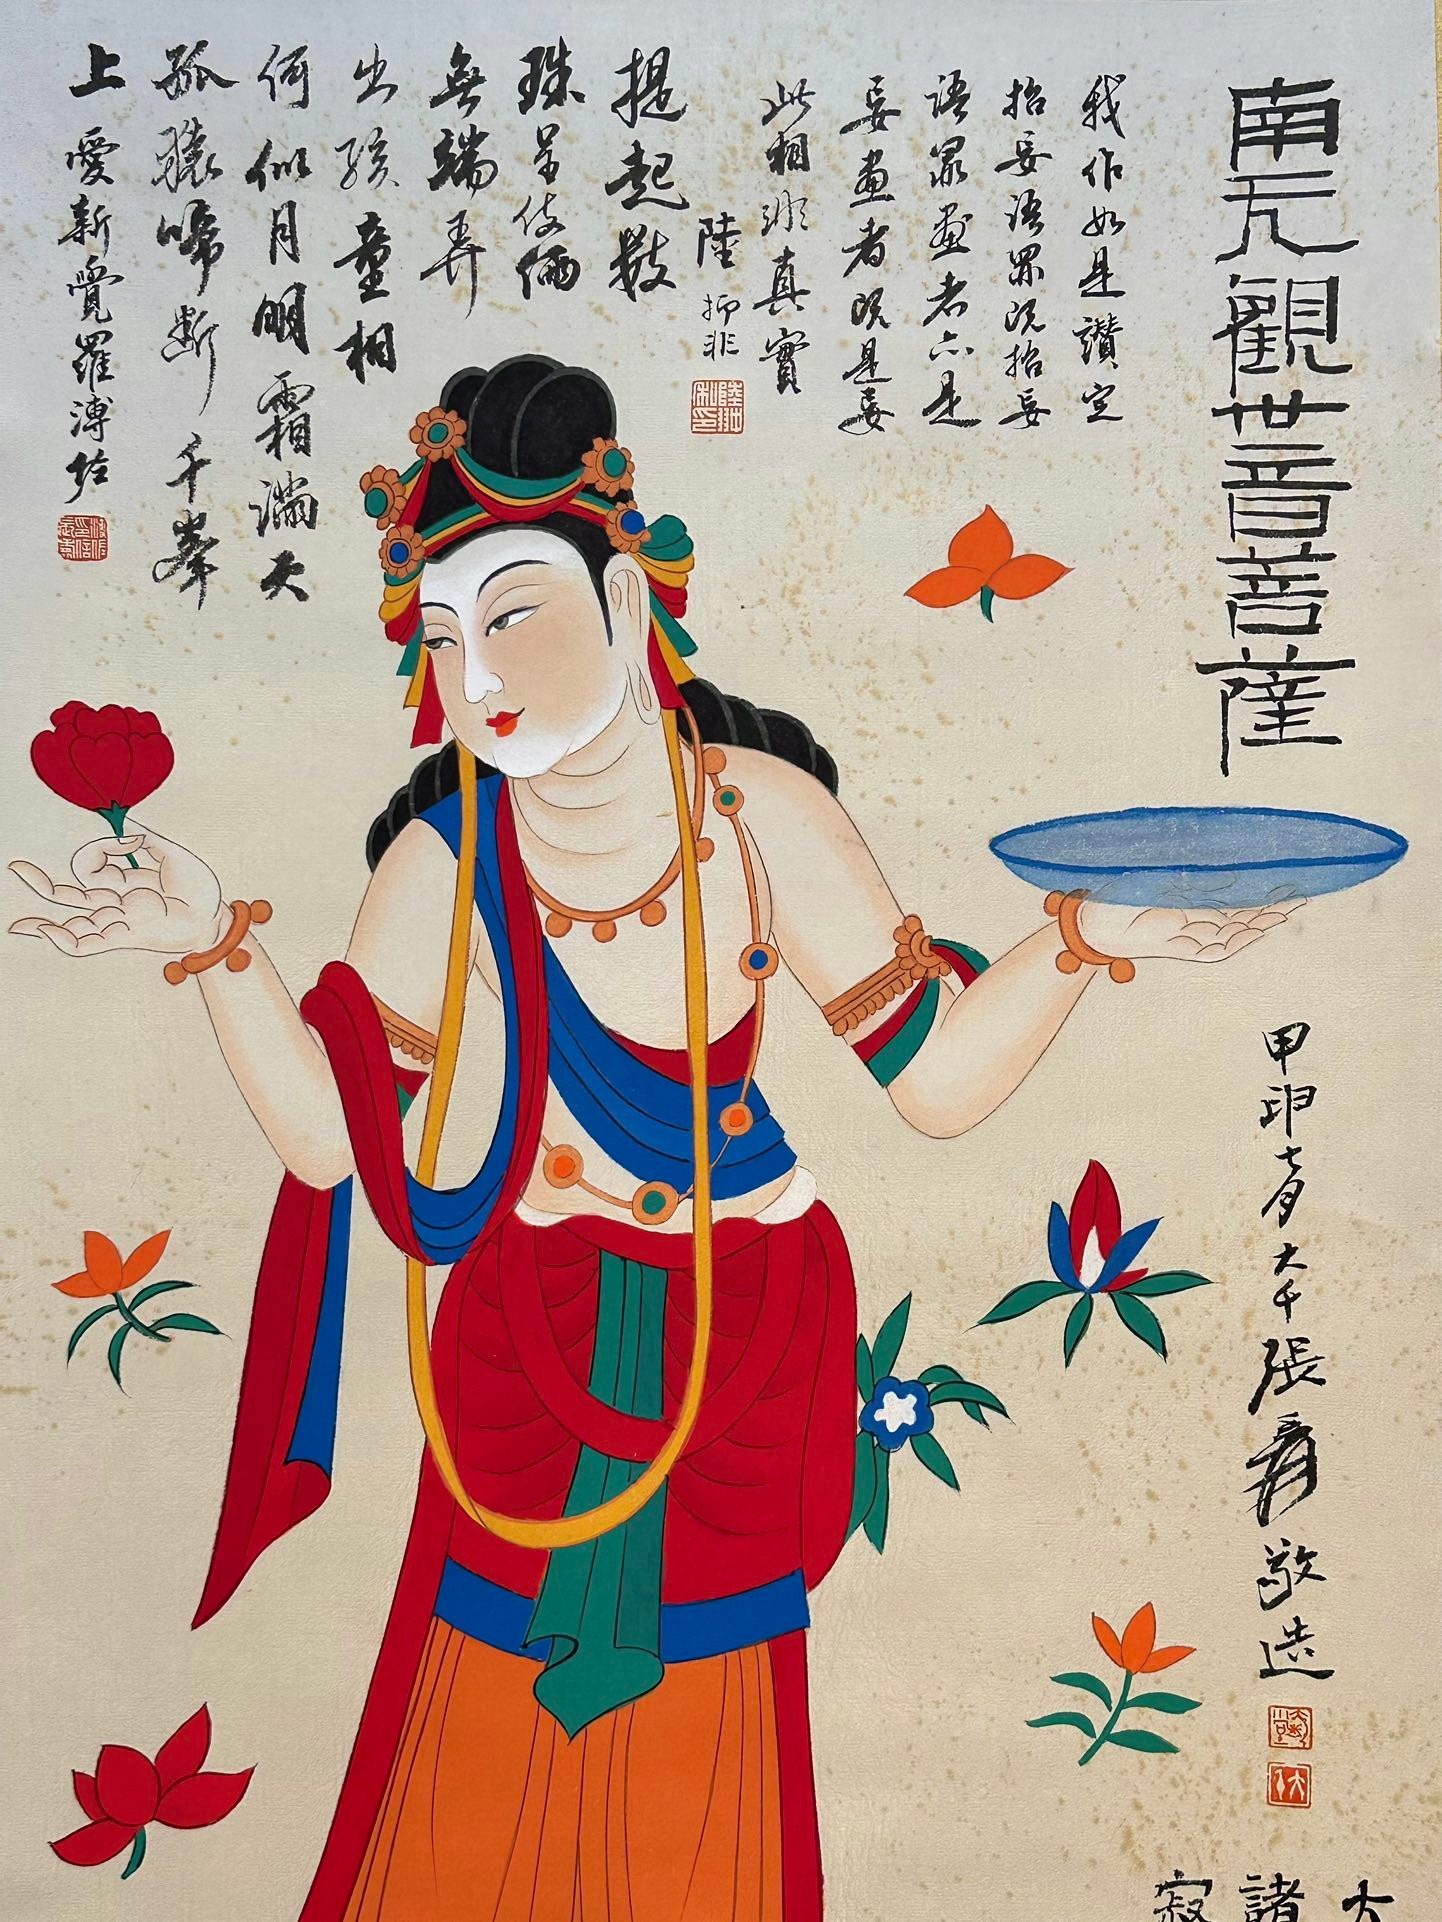 南无觀世音菩薩
甲申七月大千張爰敬造
我作如是讚定
拈妄語眾既拈妄
語眾畫者亦是
妄畫者既是妄
此相非真實
陸抑非
提起數
珠呈伎倆
無端弄
出孩童相
何似月明霜滿天
孤猿啼斷千峯
上愛新覺羅溥
大
諸
寂